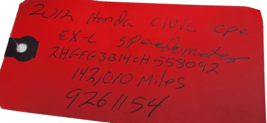 2012 Honda Civic cpe
EX-L speedometer
2HGFG3B14CH558092
142,010 Miles
9261154